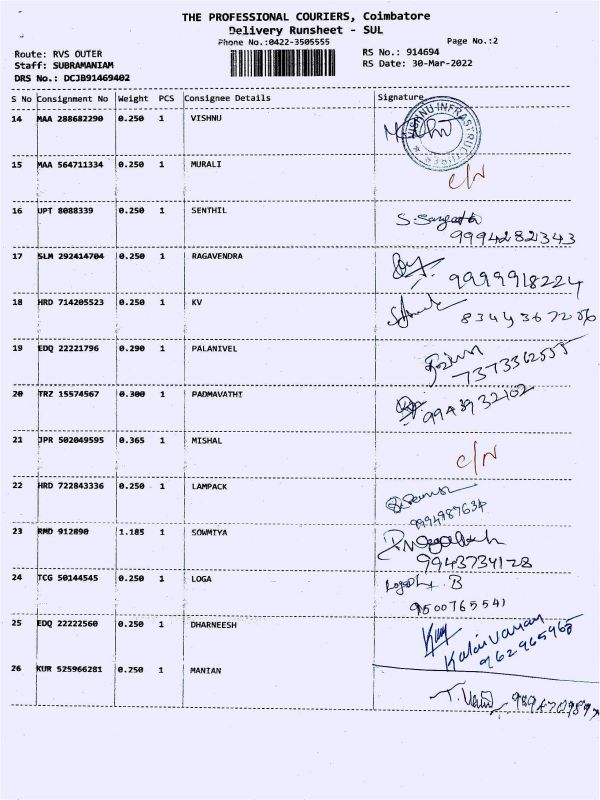 THE PROFESSIONAL COURIERS, Coimbatore
Delivery Runsheet - SUL
Phone No.:0422-3505555
Page No.:2
Route: RVS OUTER
RS No.: 914694
Staff: SUBRAMANIAM
RS Date: 30-Mar-2022
DRS No.: DCJB91469402
S No Consignment No Weight PCS Consignee Details Signature
14 MAA 288682290 0.250 1 VISHNU
15 MAA 564711334 0.250 1 MURALI C/N
16 UPT 8088339 0.250 1 SENTHIL
9994282343
17 SLM 292414704 0.250 1 RAGAVENDRA
9999918224
18 HRD 714205523 0.250 1 KV
19 EDQ 22221796 0.290 1 PALANIVEL
20 TRZ 15574567 0.300 1 PADMAVATHI
9943932102
21 JPR 502049595 0.365 1 MISHAL C/N
22 HRD 722843336 0.250 1 LAMPACK
23 RMD 912890 1.185 1 SOWMIYA
9943734128
24 TCG 50144545 0.250 1 LOGA
9500765541
25 EDQ 22222560 0.250 1 DHARNEESH
Kalaivanan
962965965
26 KUR 525966281 0.250 1 MANIAN